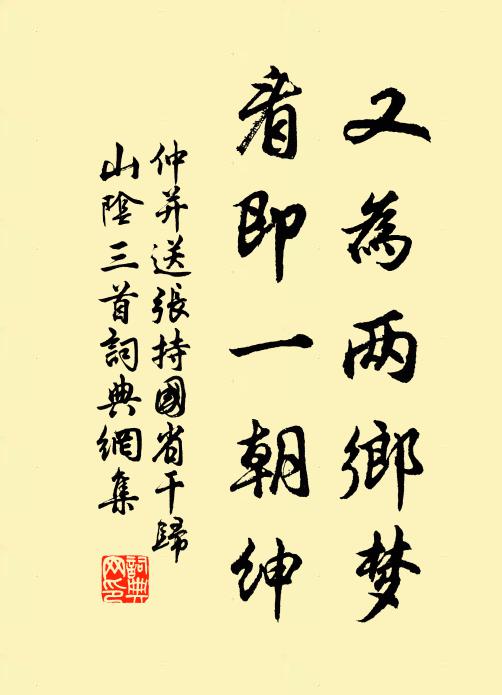 又為两鄉梦
看即一朝紳
仲并送張持國省干歸
山陰三首詞典網集
詞典网印